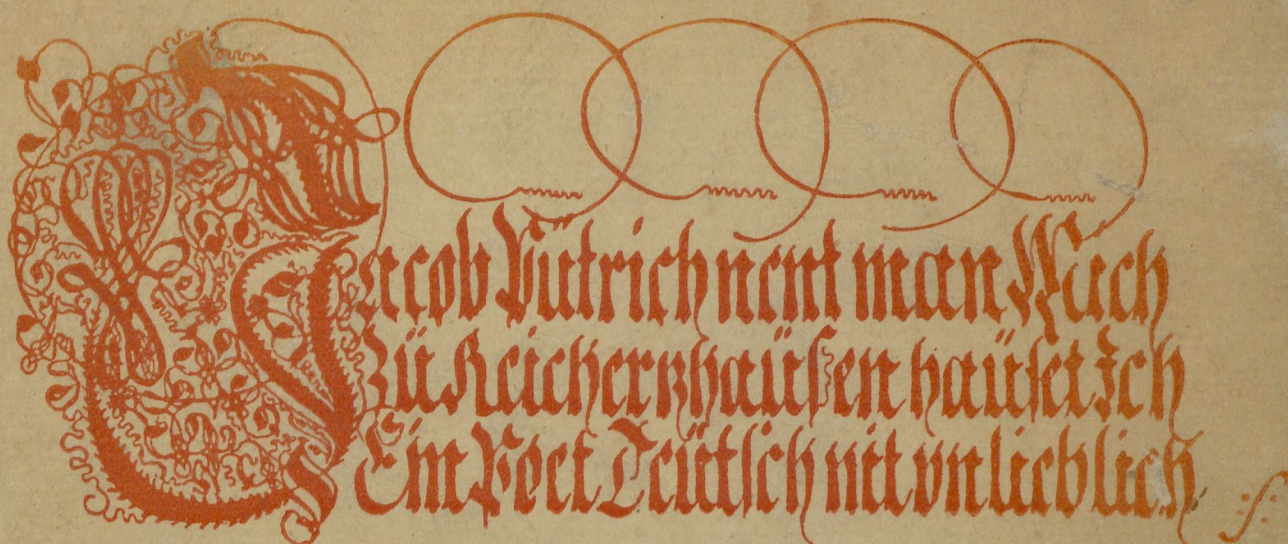 Jacob Püttrich nent man Mich
Zü Reicherzhaüßen haüset Ich
Ein Poet Teütsch nit vnlieblich